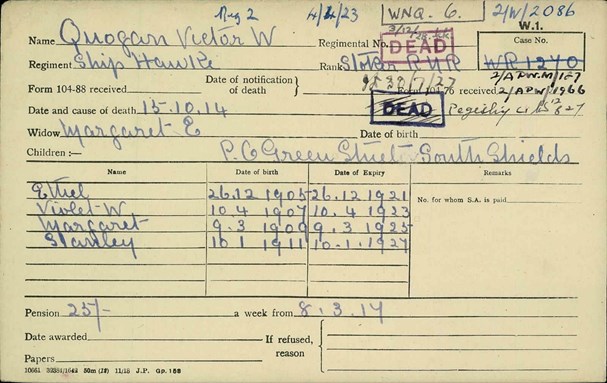 Reg 2 4/4/23 WNQ. 6. 2/W/2086
W.1.
Name Quogan Victor W Regimental No. DEAD Case No.
Regiment Ship Hawke Rank Stoker R N R WR1270
Form 104-88 received Date of notification of death 30/7/27 Form 104-76 received 2/APW.M/1-7
2/APW/1966
Date and cause of death 15.10.14 DEAD
Widow Margaret E Date of birth
Children :— P.O Green Street South Shields
Name Date of birth Date of Expiry Remarks
Ethel 26.12 1905 26.12.1921 No. for whom S.A. is paid
Violet W 10.4 1907 10.4 1923
Margaret 9.3 1909 9.3 1925
Stanley 10.1 1911 10.1.1927
Pension 25/- a week from 8.3.17
Date awarded If refused, reason
Papers
10661 39384/1642 50m (28) 11/18 J.P. Gp. 168